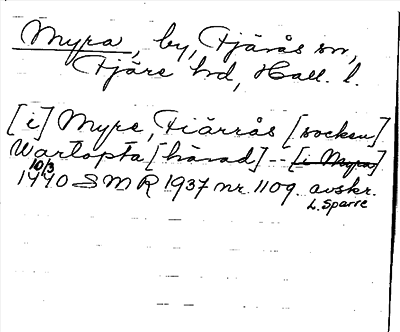 Myra, by, Fjärås sn,
Fjäre hd, Hall. l.
[i] Myre, Fiärrås [socken]
Wartopta [härad] -- [i Myra]
10/3
1440 SMR 1937 nr. 1109. avskr.
L. Sparre